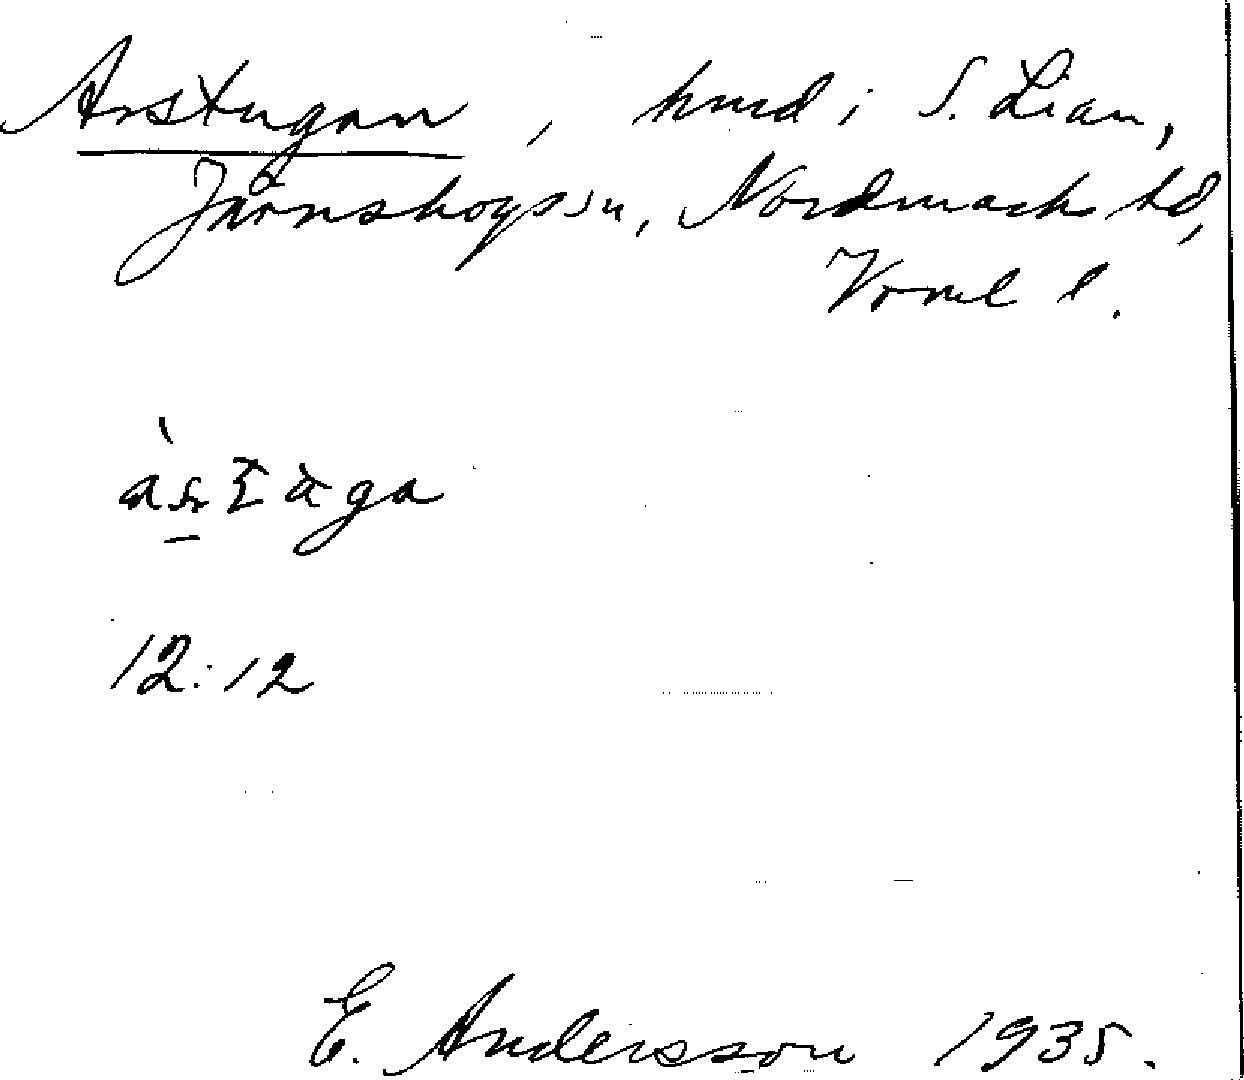 Arstugan, hmd i S. Lian,
Järnskogs sn, Nordmark hd,
Vrml l.
12:12
E. Andersson 1935.